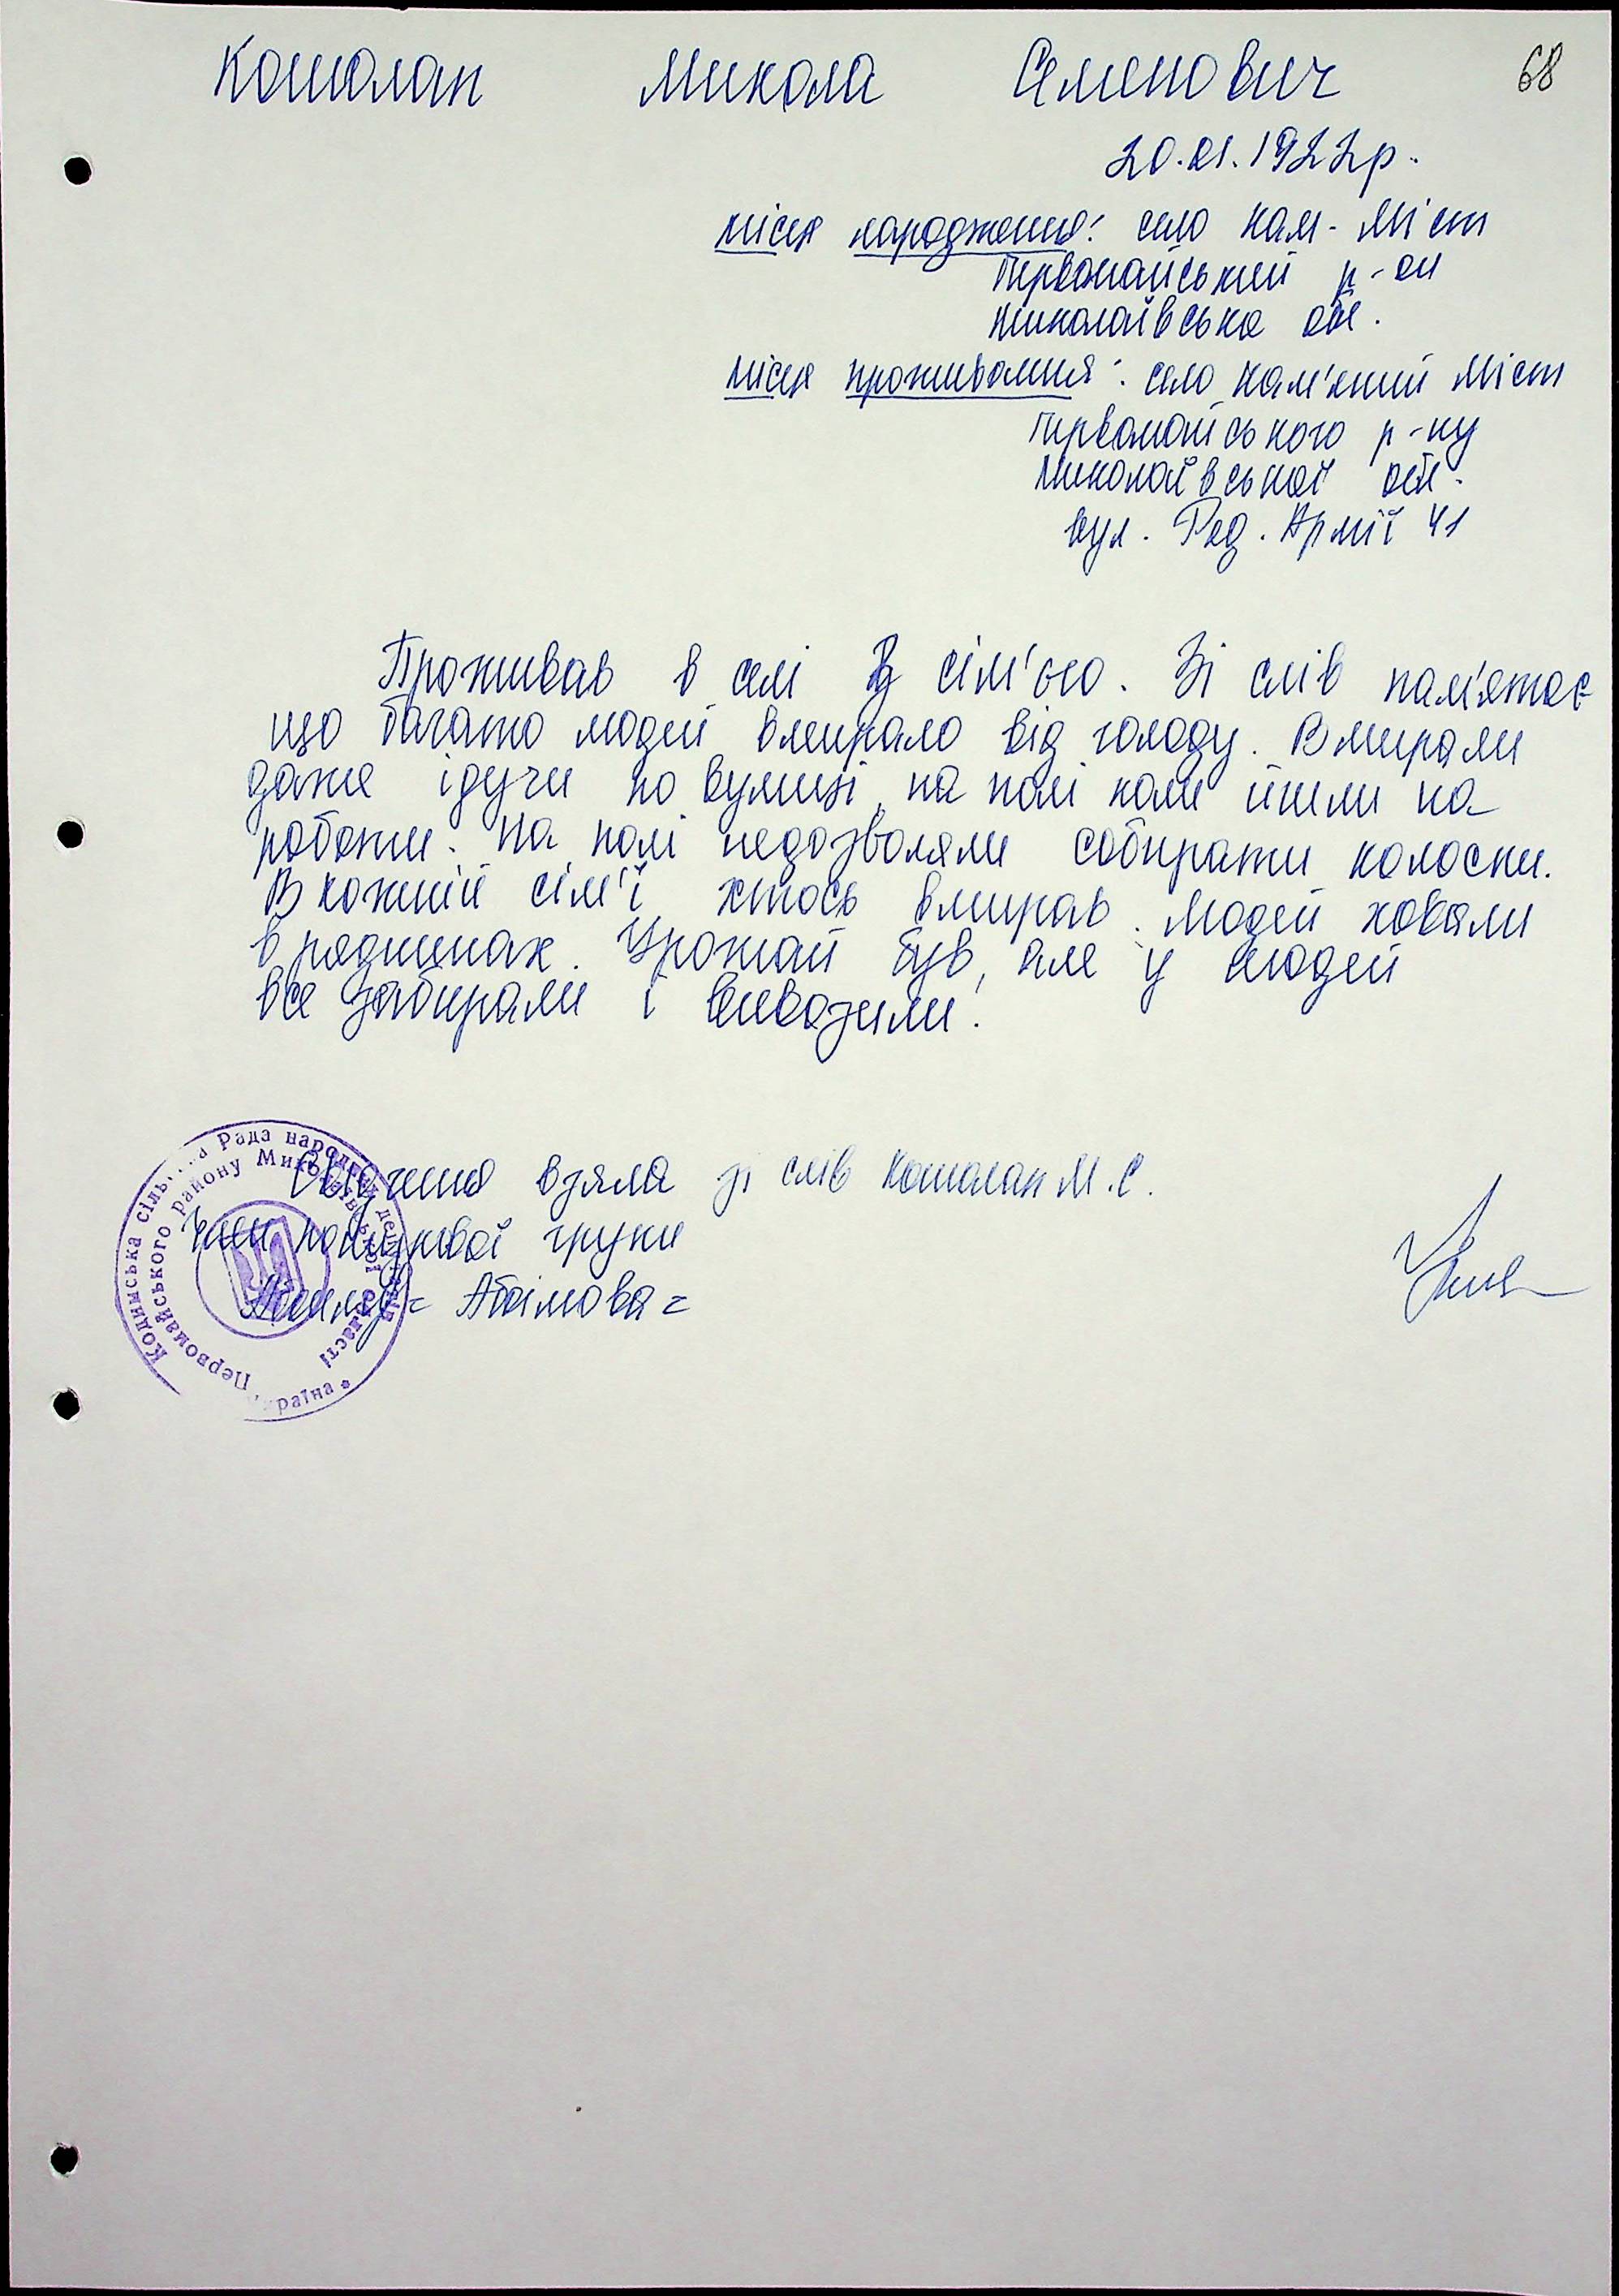 Кошолап Микола Семенович 68
20.01.1922р.
місця народження: село Кам-Міст
Первомайський р-он
Миколаївська обл.
місця проживання: село Кам'яний Міст
Первомайського р-ну
Миколаївської обл.
вул. Рад. Армії 41
Проживав в селі з сім'єю. Зі слів пам'ятає
що багато людей вмирало від голоду. Вмирали
даже ідучи по вулиці, на полі коли йшли на
роботи. На полі недозволяли собирати колоски.
В кожній сім'ї хтось вмирав. Людей ховали
в ряднинах. Урожай був, але у людей
все забирали і вивозили.
Свідчення взяла зі слів Кошолап М.С.
Член пошукової групи
Абаімова
Кодимська сільська Рада народних депутатів
Первомайського району Миколаївської області
Україна